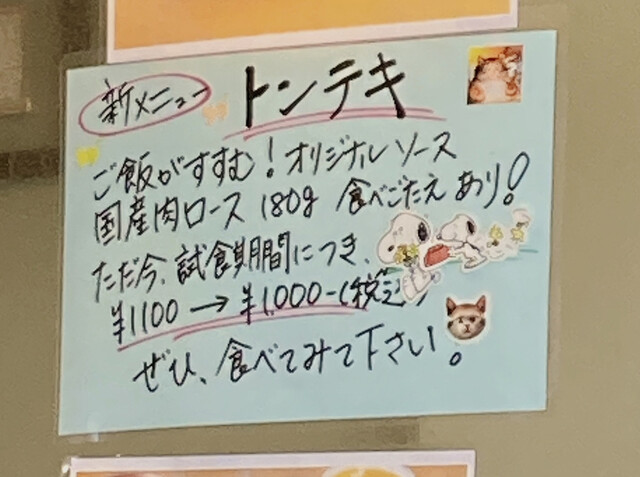 新メニュー トンテキ
ご飯がすすむ！オリジナルソース
国産肉ロース 180g 食べごたえあり！
ただ今、試食期間につき、
¥1100→¥1,000-(税込)
ぜひ、食べてみて下さい。